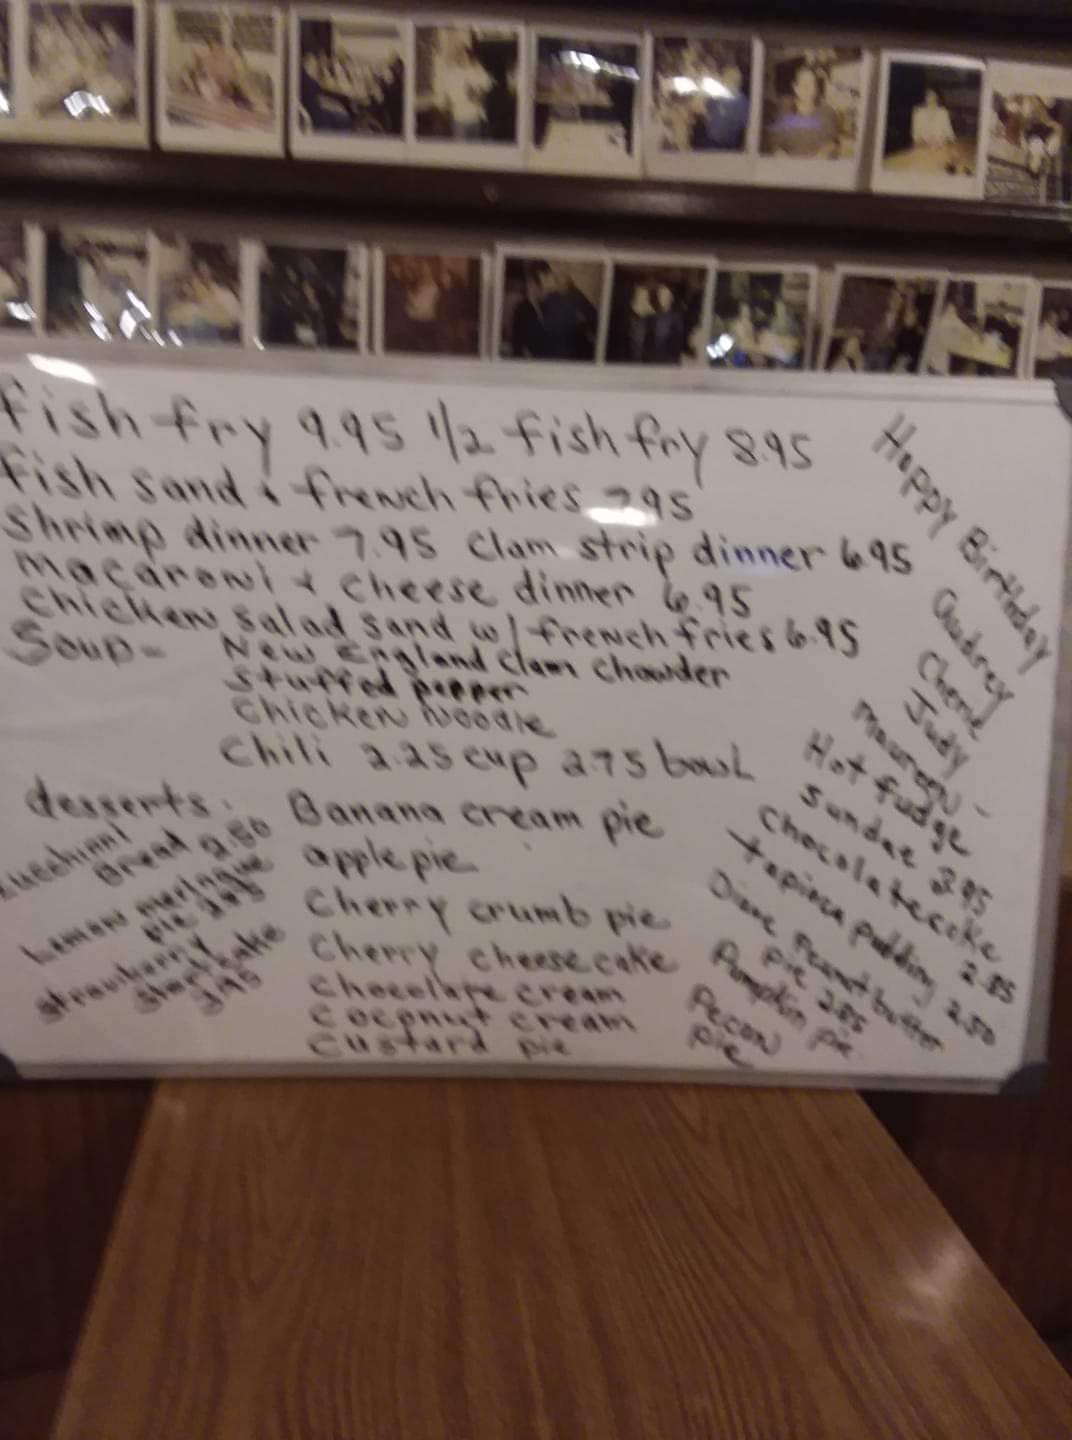 fish fry 9.95 1/2 fish fry 8.95
fish sand & french fries 7.95
Shrimp dinner 7.95 Clam strip dinner 6.95
macaroni + cheese dinner 6.95
Chicken salad sand w/ french fries 6.95
Soup - New England clam chowder
stuffed pepper
Chicken Noodle
Chili 2.25 cup 2.75 bowl
desserts.
zucchini
bread 2.50
Lemon meringue
pie
strawberry
shortcake
Banana cream pie
apple pie
Cherry crumb pie
Cherry cheese cake
Chocolate cream
Coconut cream
Custard pie
Happy Birthday
Audrey
Judy
Maureen -
Hot fudge
sundae 3.95
Chocolate cake 2.85
tapioca pudding 2.50
Peanut butter
pie 2.85
Pumpkin pie
Pecan
pie